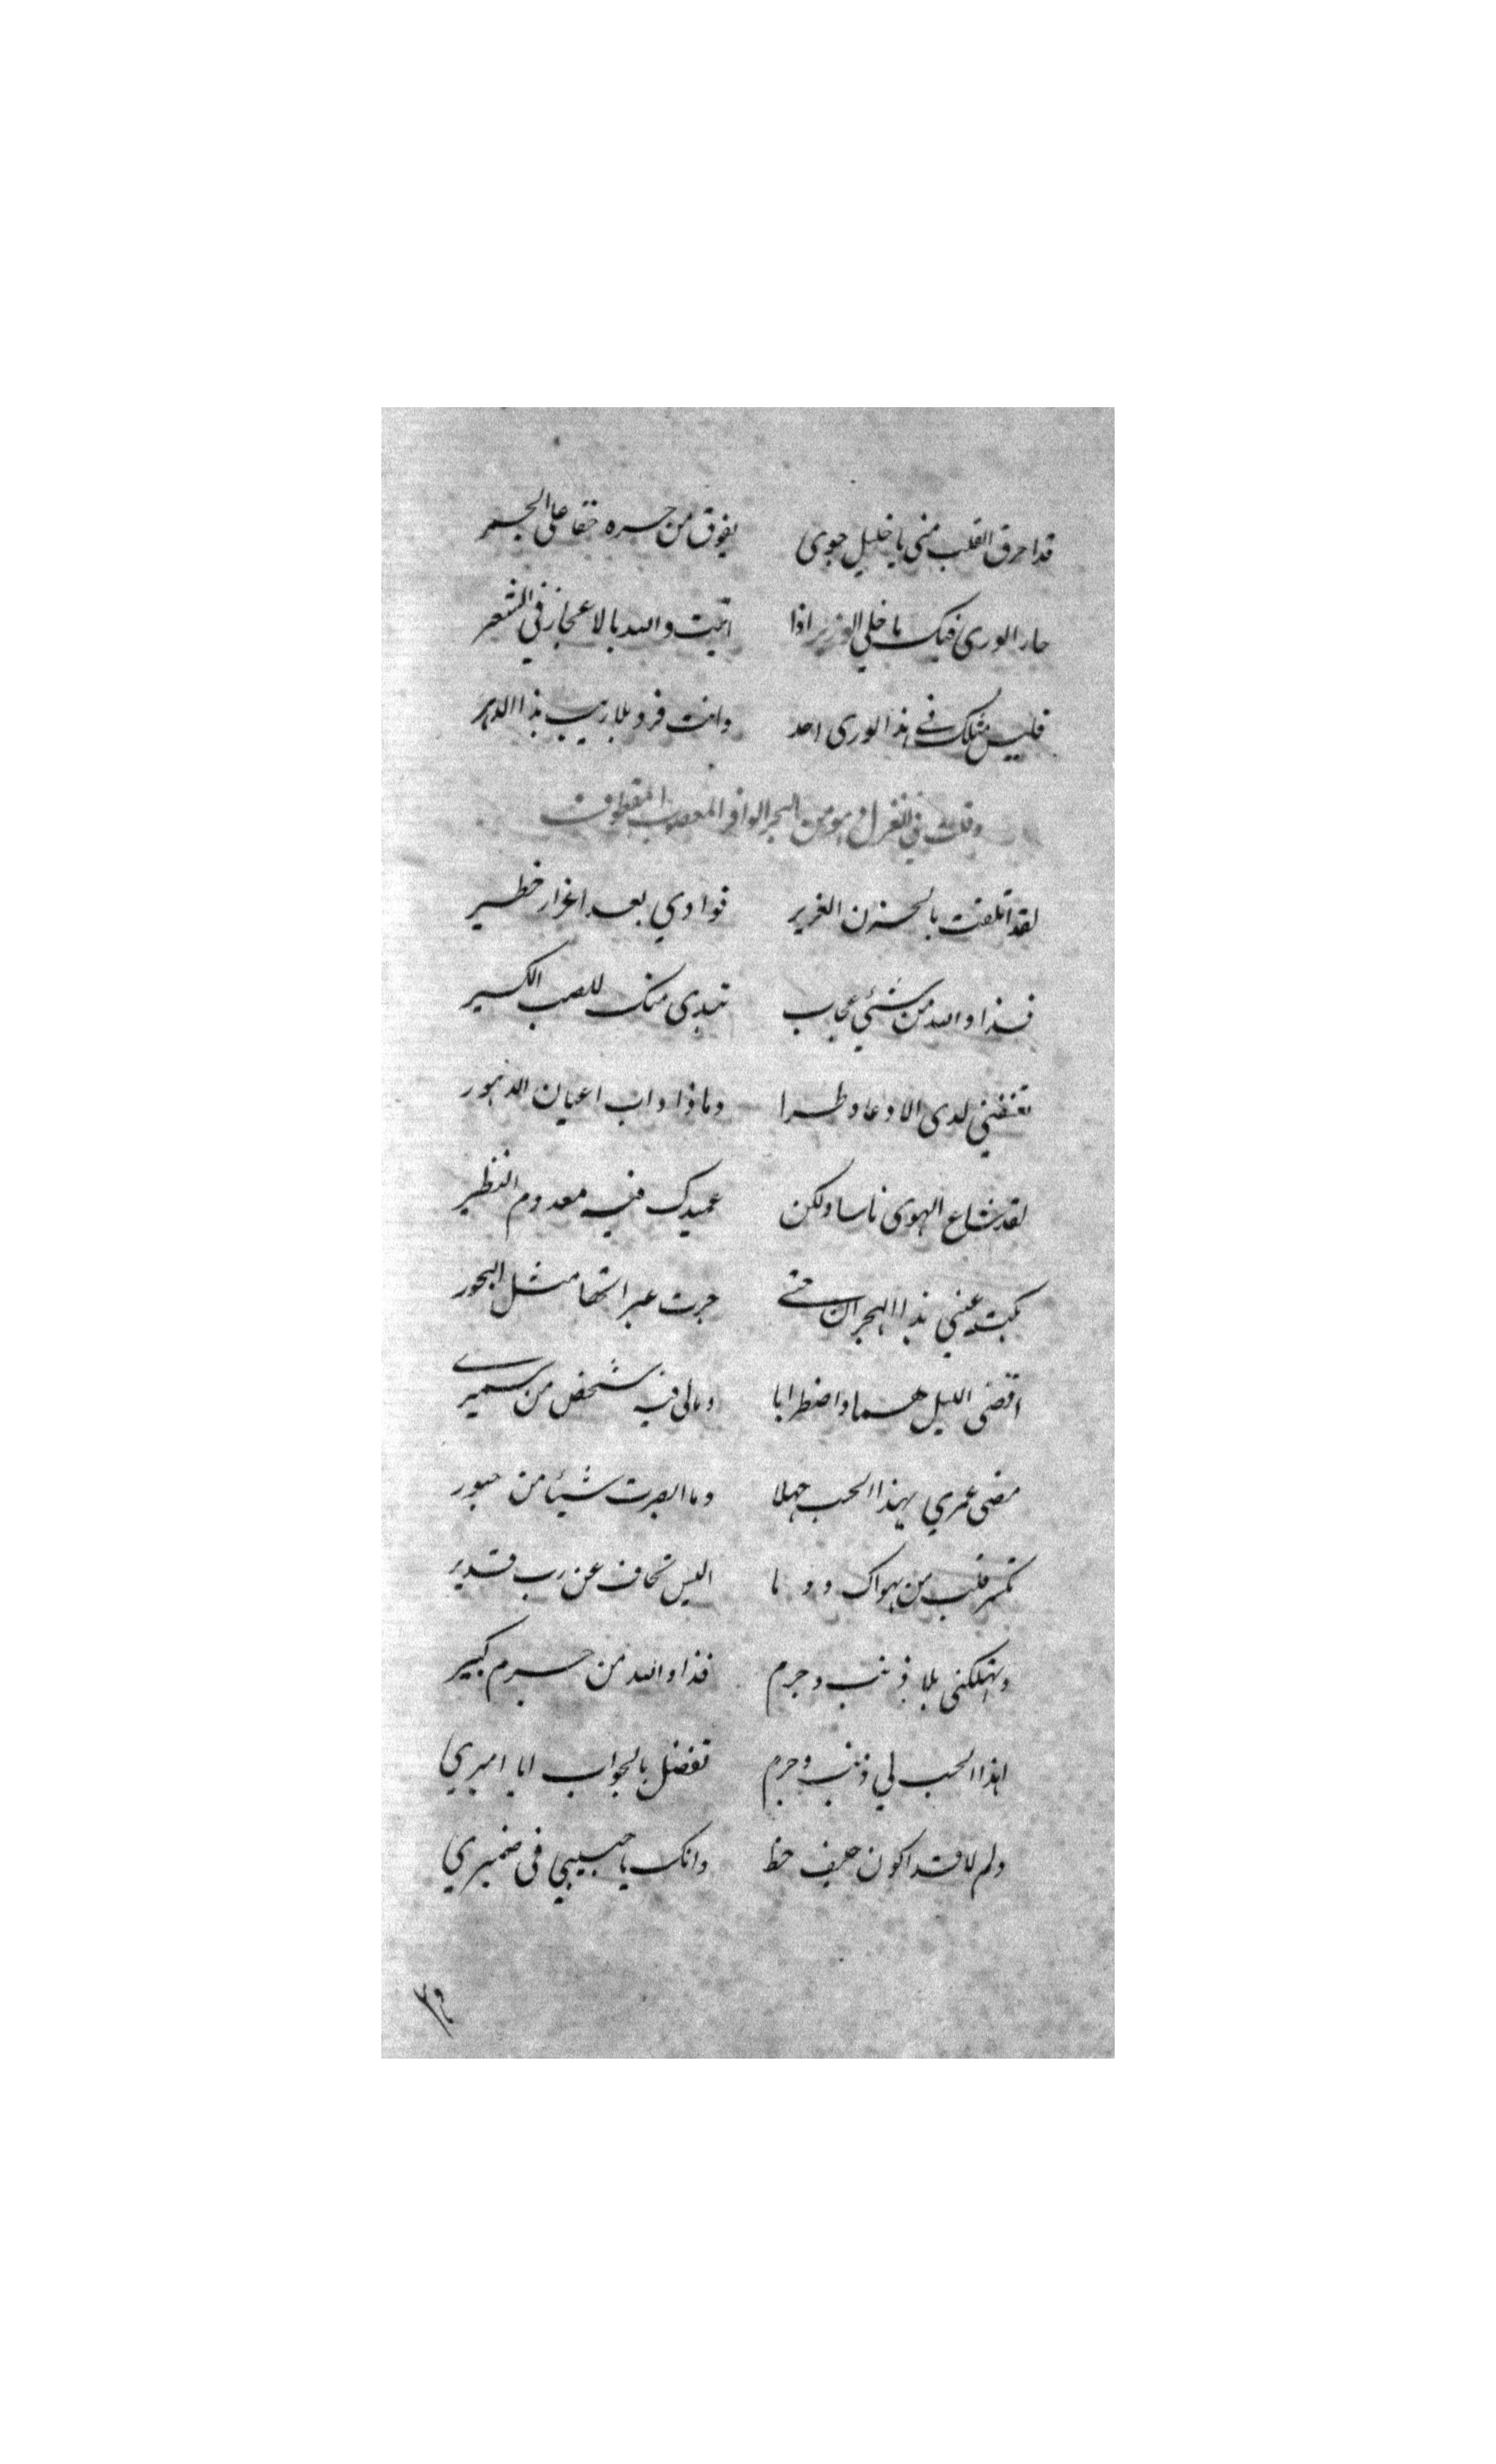 قد احرق القلب مني يا خليل جوى يفوق من حره حقا على الجمر
حار الورى فيك يا خلي الوزير اذا اتيت والله بالاعجاز في الشعر
فليس مثلك في هذا الورى احد وانت فرد بلا ريب بذا الدهر
وقلت في الغزل وهو من البحر الوافر المعصوب المقطوف
لقد اتلفت بالحزن الغزير فوادي بعد اغرار خطير
فذا والله من شيء عجاب تبدى منك للصب الكسير
تغضني لدى الاوغاد طرا وما ذا داب اعيان الدهور
لقد شاع الهوى ناسا ولكن عميدك فيه معدوم النظير
بكت عيني بذا الهجران حتى جرت عبراتها مثل البحور
اقضى الليل هما واضطرابا ومالي فيه شخص من سميري
مضى عمري بهذا الحب جهلا وما ابصرت شيئا من حبور
تكسر قلب من يهواك دوما اليس تخاف عن رب قدير
وتهلكني بلا ذنب وجرم فذا والله من جرم كبير
اهذا الحب لي ذنب وجرم تفضل بالجواب ايا اميري
ولم لا قد اكون حيف حظ وانك يا حبيبي في ضميري